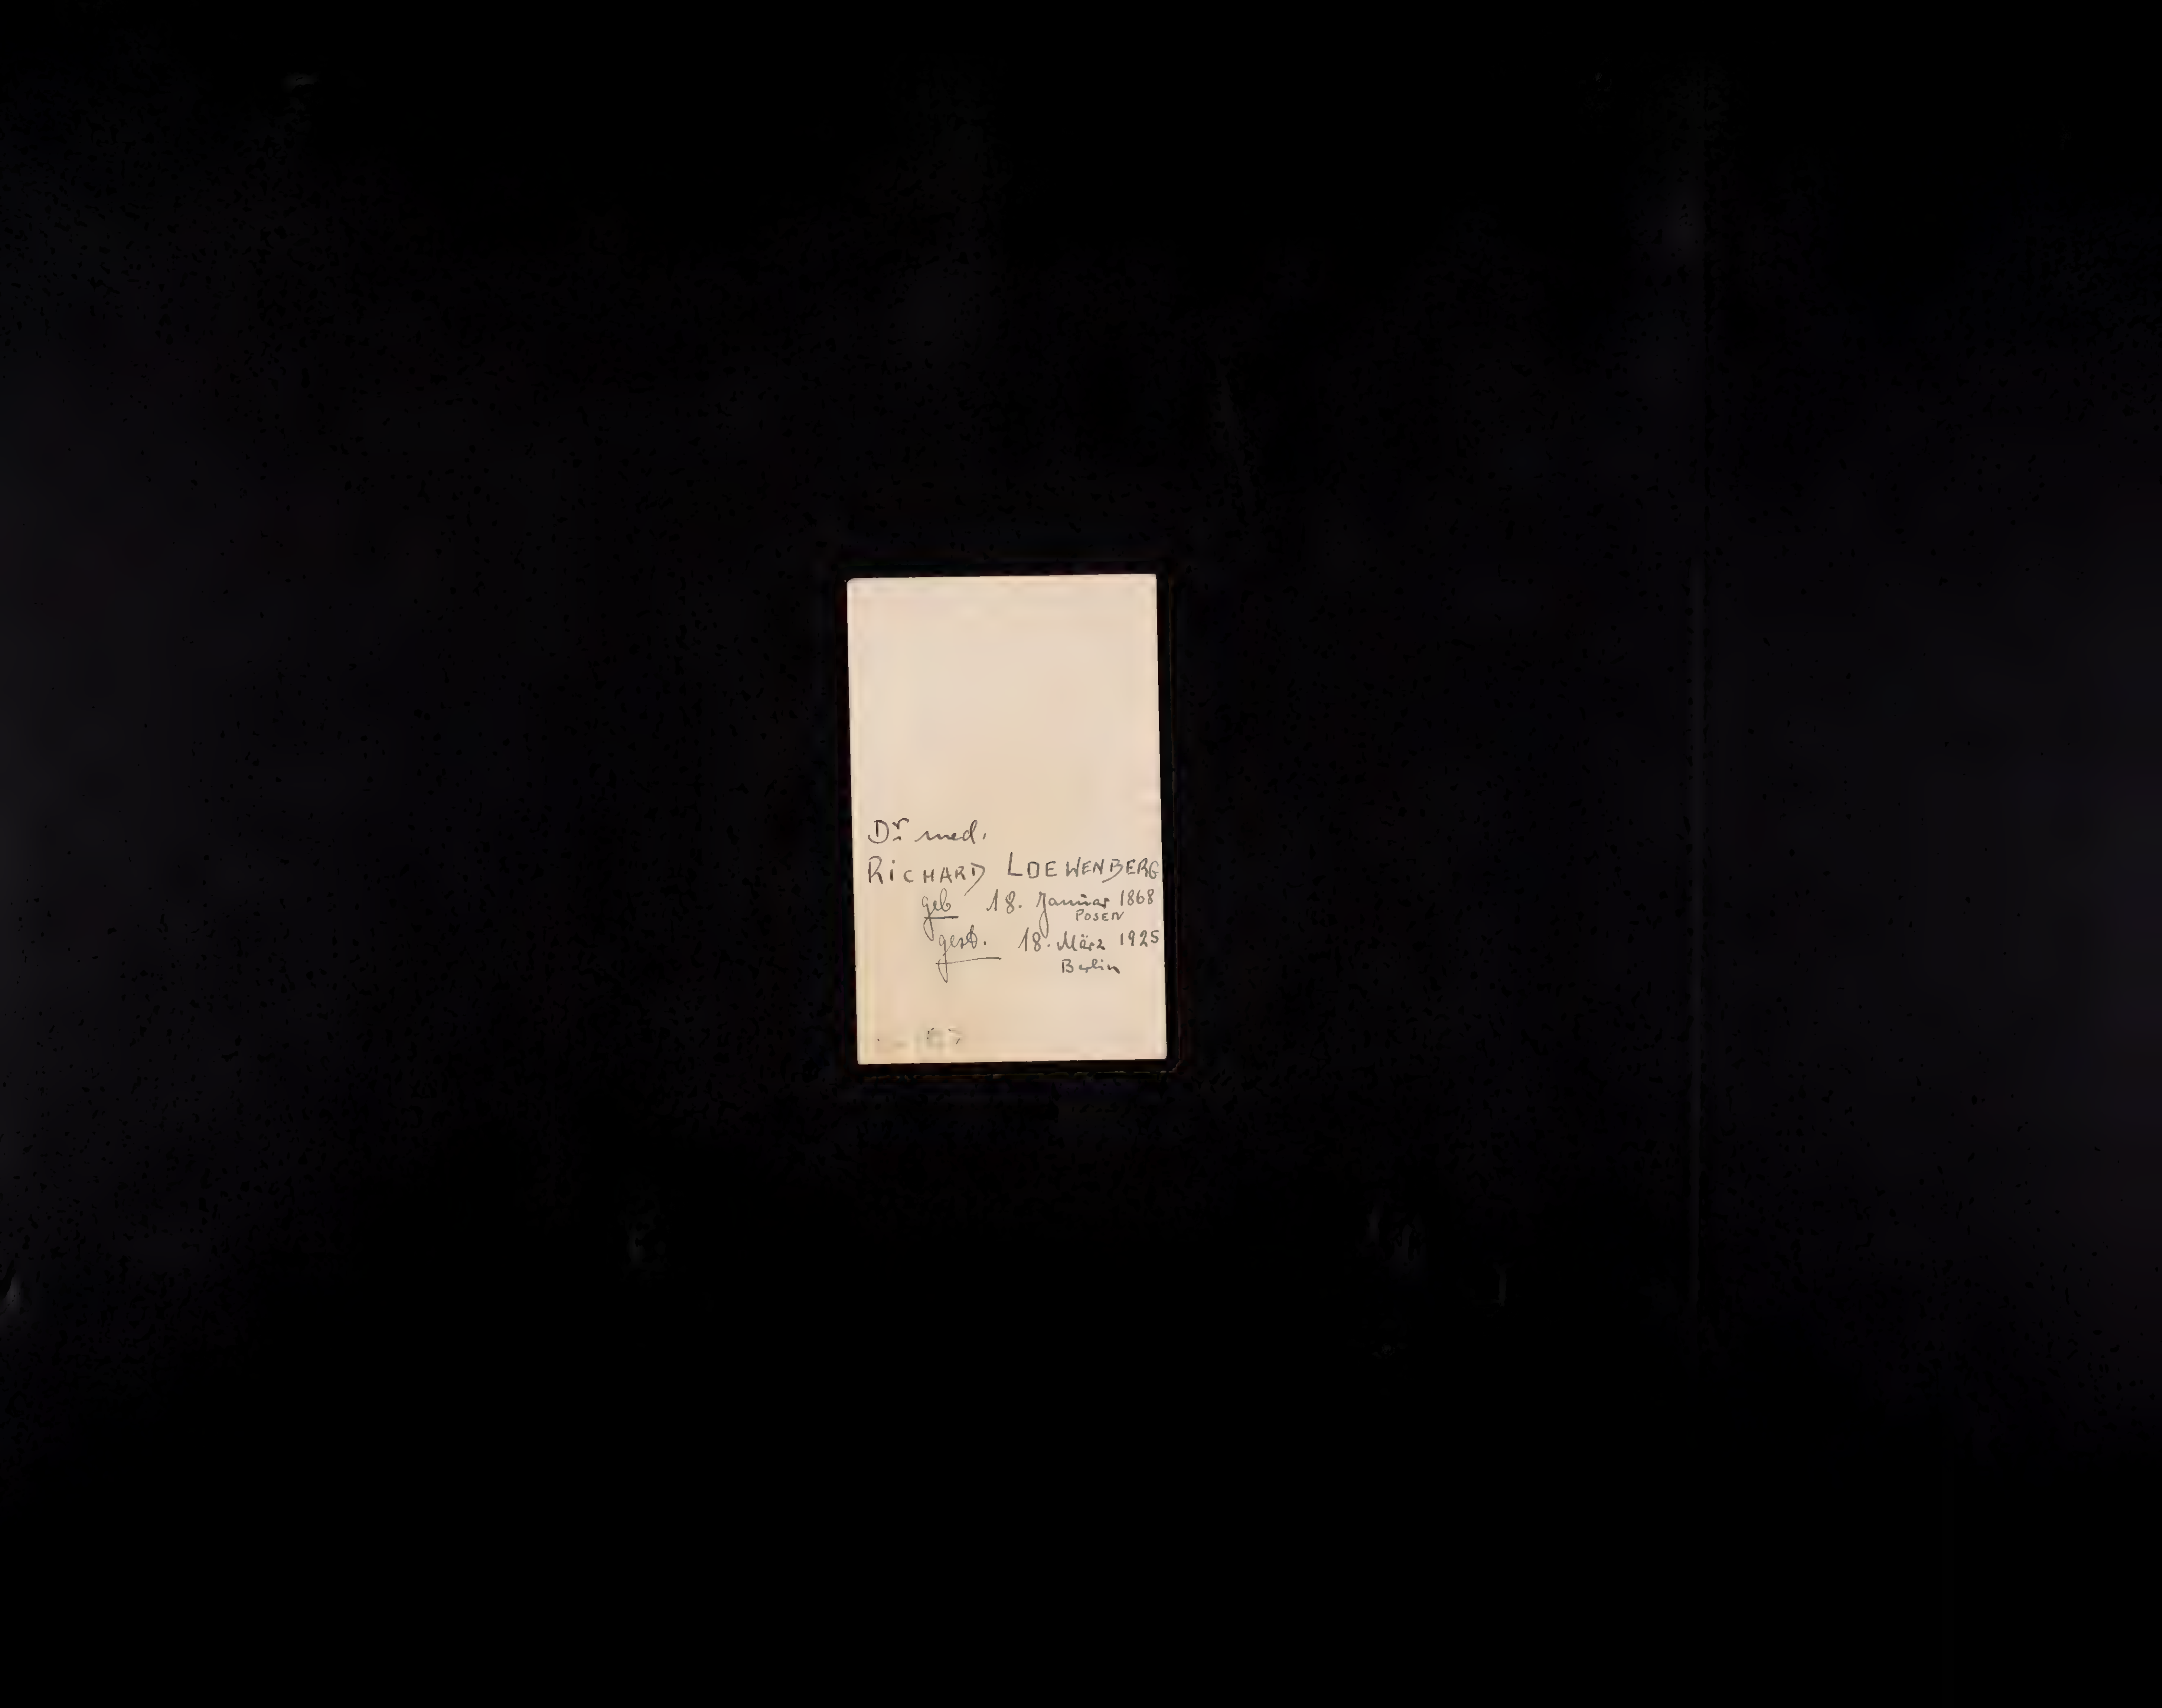 Dr. med.
RICHARD LOEWENBERG
geb 18. Januar 1868
POSEN
gest. 18. März 1925
Berlin